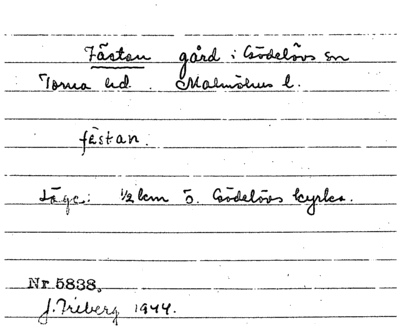 Fästan gård i Gödelövs sn
Torna hd. Malmöhus l.
fèstan.
Läge: ½ km ö. Gödelövs kyrka.
Nr 5838.
J. Friberg 1944.